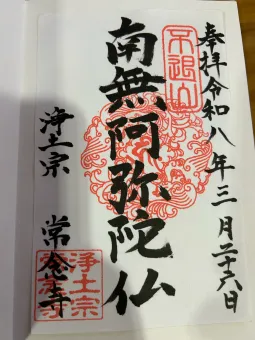 奉拝令和八年三月二十六日
不退山
南無阿弥陀仏
浄土宗
常念寺
浄土宗